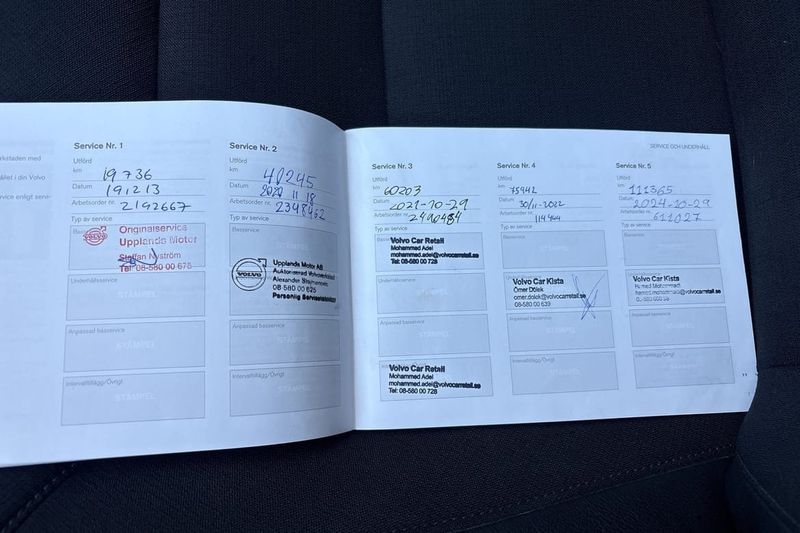 rkstaden med
ållet i din Volvo
vice enligt servi-
Service Nr. 1
Utförd
km 19736
Datum 191213
Arbetsorder nr. 2192667
Typ av service
Originalservice
Upplands Motor
Staffan Nyström
Tel: 08-580 00 675
Underhållsservice
STÄMPEL
Anpassad basservice
STÄMPEL
Intervalltillägg/Övrigt
STÄMPEL
Service Nr. 2
Utförd
km 40245
Datum 2020 11 18
Arbetsorder nr. 2348462
Typ av service
Basservice
STÄMPEL
VOLVO
Upplands Motor AB
Auktoriserad Volvoverkstad
Alexander
08-580 00 625
Personlig Servicetekniker
Anpassad basservice
STÄMPEL
Intervalltillägg/Övrigt
STÄMPEL
SERVICE OCH UNDERHÅLL
Service Nr. 3
Utförd
km 60203
Datum 2021-10-29
Arbetsorder nr. 2490484
Typ av service
Volvo Car Retail
Mohammed Adel
mohammed.adel@volvocarretail.se
Tel: 08-580 00 728
Underhållsservice
Anpassad basservice
STÄMPEL
Volvo Car Retail
Mohammed Adel
mohammed.adel@volvocarretail.se
Tel: 08-580 00 728
Service Nr. 4
Utförd
km 75942
Datum 30/11-2022
Arbetsorder nr.
Typ av service
Basservice
STÄMPEL
Volvo Car Kista
Ömer Dölek
omer.dolek@volvocarretail.se
08-580 00 639
Anpassad basservice
STÄMPEL
Intervalltillägg/Övrigt
STÄMPEL
Service Nr. 5
Utförd
km 111365
Datum 2024-10-29
Arbetsorder nr. 611027
Typ av service
Basservice
Volvo Car Kista
Hamed Mohammadi
hamed.mohammadi@volvocarretail.se
Anpassad basservice
STÄMPEL
Intervalltillägg/Övrigt
STÄMPEL